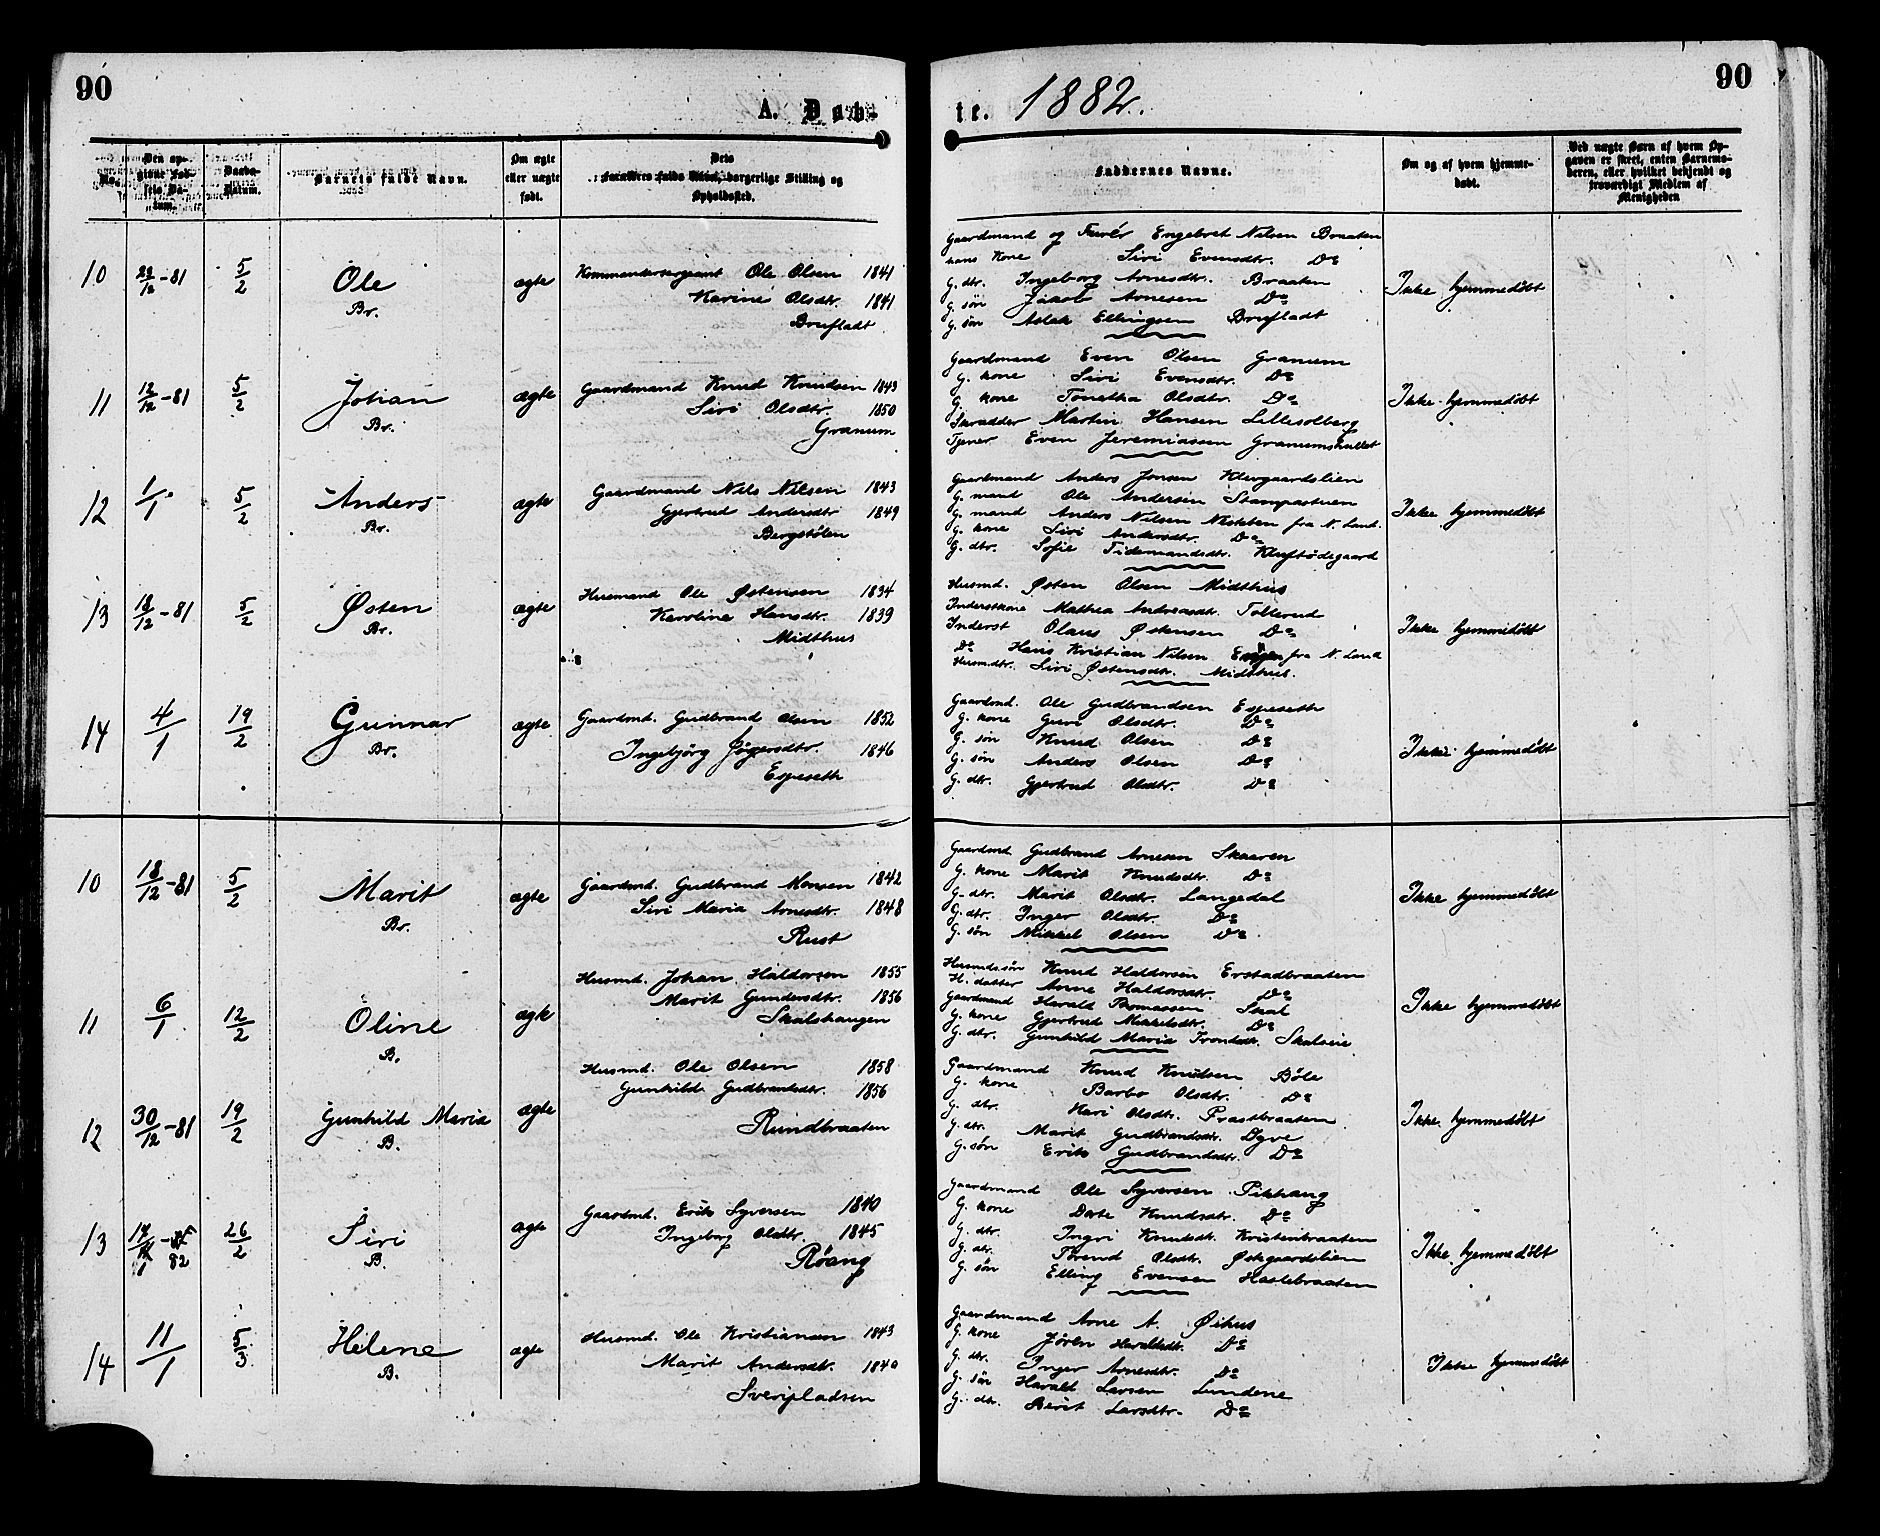 90
90
A. Døb-
te. 1882.
No.
Den op-
givne Fød-
sels Da-
tum.
Daabs-
Datum.
Barnets fulde Navn.
Om ægte
eller uægte
født.
Dets
Forældres fulde Navn, borgerlige Stilling og
Opholdssted.
Faddernes Navne.
Om og af hvem hjemme-
døbt.
Ved uægte Børn af hvem Op-
gaven er skeet, enten Barnemo-
deren, eller hvilket bekjendt og
troværdigt Medlem af
Menigheden
10 29/12 -81 5/2 Ole ægte
Br.
Kommandersergeant Ole Olsen 1841
Karine Olsdtr. 1841
Brufladt
Gaardmand og Engebret Nilsen Braaten
hans Kone Siri Evensdtr. Do
G. dtr. Ingeborg Arnesdtr. Braaten
G. søn Jakob Arnesen Do
G. søn Aslak Ellingsen Brufladt
Ikke hjemmedøbt
11 12/12 -81 5/2 Johan ægte
Br.
Gaardmand Knud Knudsen 1843
Siri Olsdtr. 1850
Granum
Gaardmand Even Olsen Granum
G. kone Siri Evensdtr. Do
G. kone Tonetha Olsdtr. Do
Skrædder Martin Hansen Lillesolberg
Tjener Even Jeremiassen Granumshullet
Ikke hjemmedøbt
12 1/1 5/2 Anders ægte
Br.
Gaardmand Nils Nilsen 1843
Gjertrud Andersdtr 1849
Bergstølen
Gaardmand Anders Jonsen Klevgaardslien
G. mand Ole Andersen Stampestuen
G. mand Anders Nilsen fra N. Land.
G. kone Siri Andersdtr. Do
G. dtr. Sofie Tidemandsdtr. Kluftødegaard
Ikke hjemmedøbt
13 18/12 -81 5/2 Østen ægte
Br.
Husmand Ole Østensen 1834
Karoline Hansdtr. 1839
Midthus
Husmd. Østen Olsen Midthus
Inderstkone Mathea Andreasdtr. Tollerud
Inderst Olaus Østensen Do
Do Hans Kristian Nilsen Engen fra N. Land
Husmdtr. Siri Østensdtr. Midthus.
Ikke hjemmedøbt
14 4/1 19/2 Gunnar ægte
Br.
Gaardmd. Gudbrand Olsen 1852
Ingebjørg 1846
Espeseth
Gaardmd. Ole Gudbrandsen Espeseth
G. kone Guri Olsdtr. Do
G. søn Knud Olsen Do
G. søn Anders Olsen Do
G. dtr. Gjertrud Olsdtr. Do
Ikke hjemmedøbt
10 18/12 -81 5/2 Marit ægte
Br.
Gaardmd. Gudbrand Monsen 1842
Siri Maria Arnesdtr. 1848
Rust
Gaardmd Gudbrand Arnesen Skaaren
G. kone Marit Knudsdtr. Do
G. dtr. Marit Olsdtr. Langedal
G. dtr. Inger Olsdtr. Do
G. søn Mikkel Olsen Do
Ikke hjemmedøbt
11 6/1 12/2 Oline ægte
B.
Husmd. Johan Haldorsen 1855
Marit Gundersdtr. 1856
Skalshaugen
Husmds.søn Knud Haldorsen Erstadbraaten
H. datter Anne Haldorsdtr. Do
Gaardmand Harald Thomassen Skal
G. kone Gjertrud Mikkelsdtr. Do
G. dtr. Gunhild Maria Trondsdtr. Skalseie
Ikke hjemmedøbt
12 30/12 -81 19/2 Gunhild Maria ægte
B.
Husmd. Ole Olsen 1858
Gunhild Gudbrandsdtr. 1856
Rundbraaten
Gaardmand Knud Knudsen Bøle
G. kone Barbo Olsdtr. Do
G. dtr. Kari Olsdtr. Præstbraaten
G. dtr. Marit Gudbrandsdtr. Dyve
G. søn Erik Gudbrandsdtr. Do
Ikke hjemmedøbt
13 17/1 82 26/2 Siri ægte
B.
Gaardmd. Erik Syversen 1840
Ingeborg Olsdtr. 1845
Røang
Gaardmand Ole Syversen Pikhaug
G. kone Dorte Knudsdtr. Do
G. dtr. Ingri Knudsdtr. Kristenbraaten
G. dtr. Torend Olsdtr. Østgaardslien
G. søn Elling Evensen Haslebraaten
Ikke hjemmedøbt
14 11/1 5/3 Helene ægte
B.
Husmd. Ole Kristiansen 1843
Marit Andersdtr. 1840
Sveripladsen
Gaardmand Arne A. Øihus
G. kone Jøren Haraldsdtr. Do
G. dtr. Inger Arnesdtr. Do
G. søn Harald Larsen Lundene
G. dtr. Berit Larsdtr. Do
Ikke hjemmedøbt